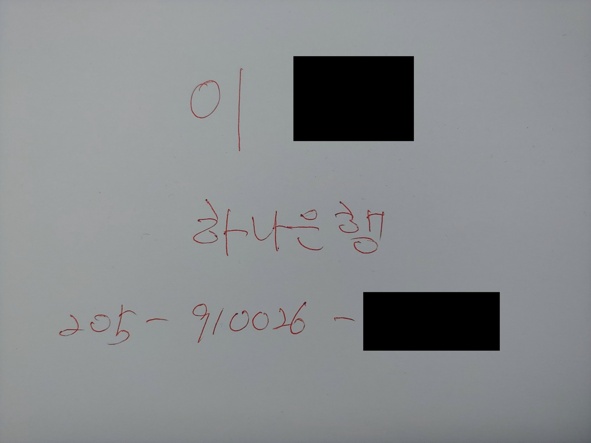 이
하나은행
205 - 910026 -